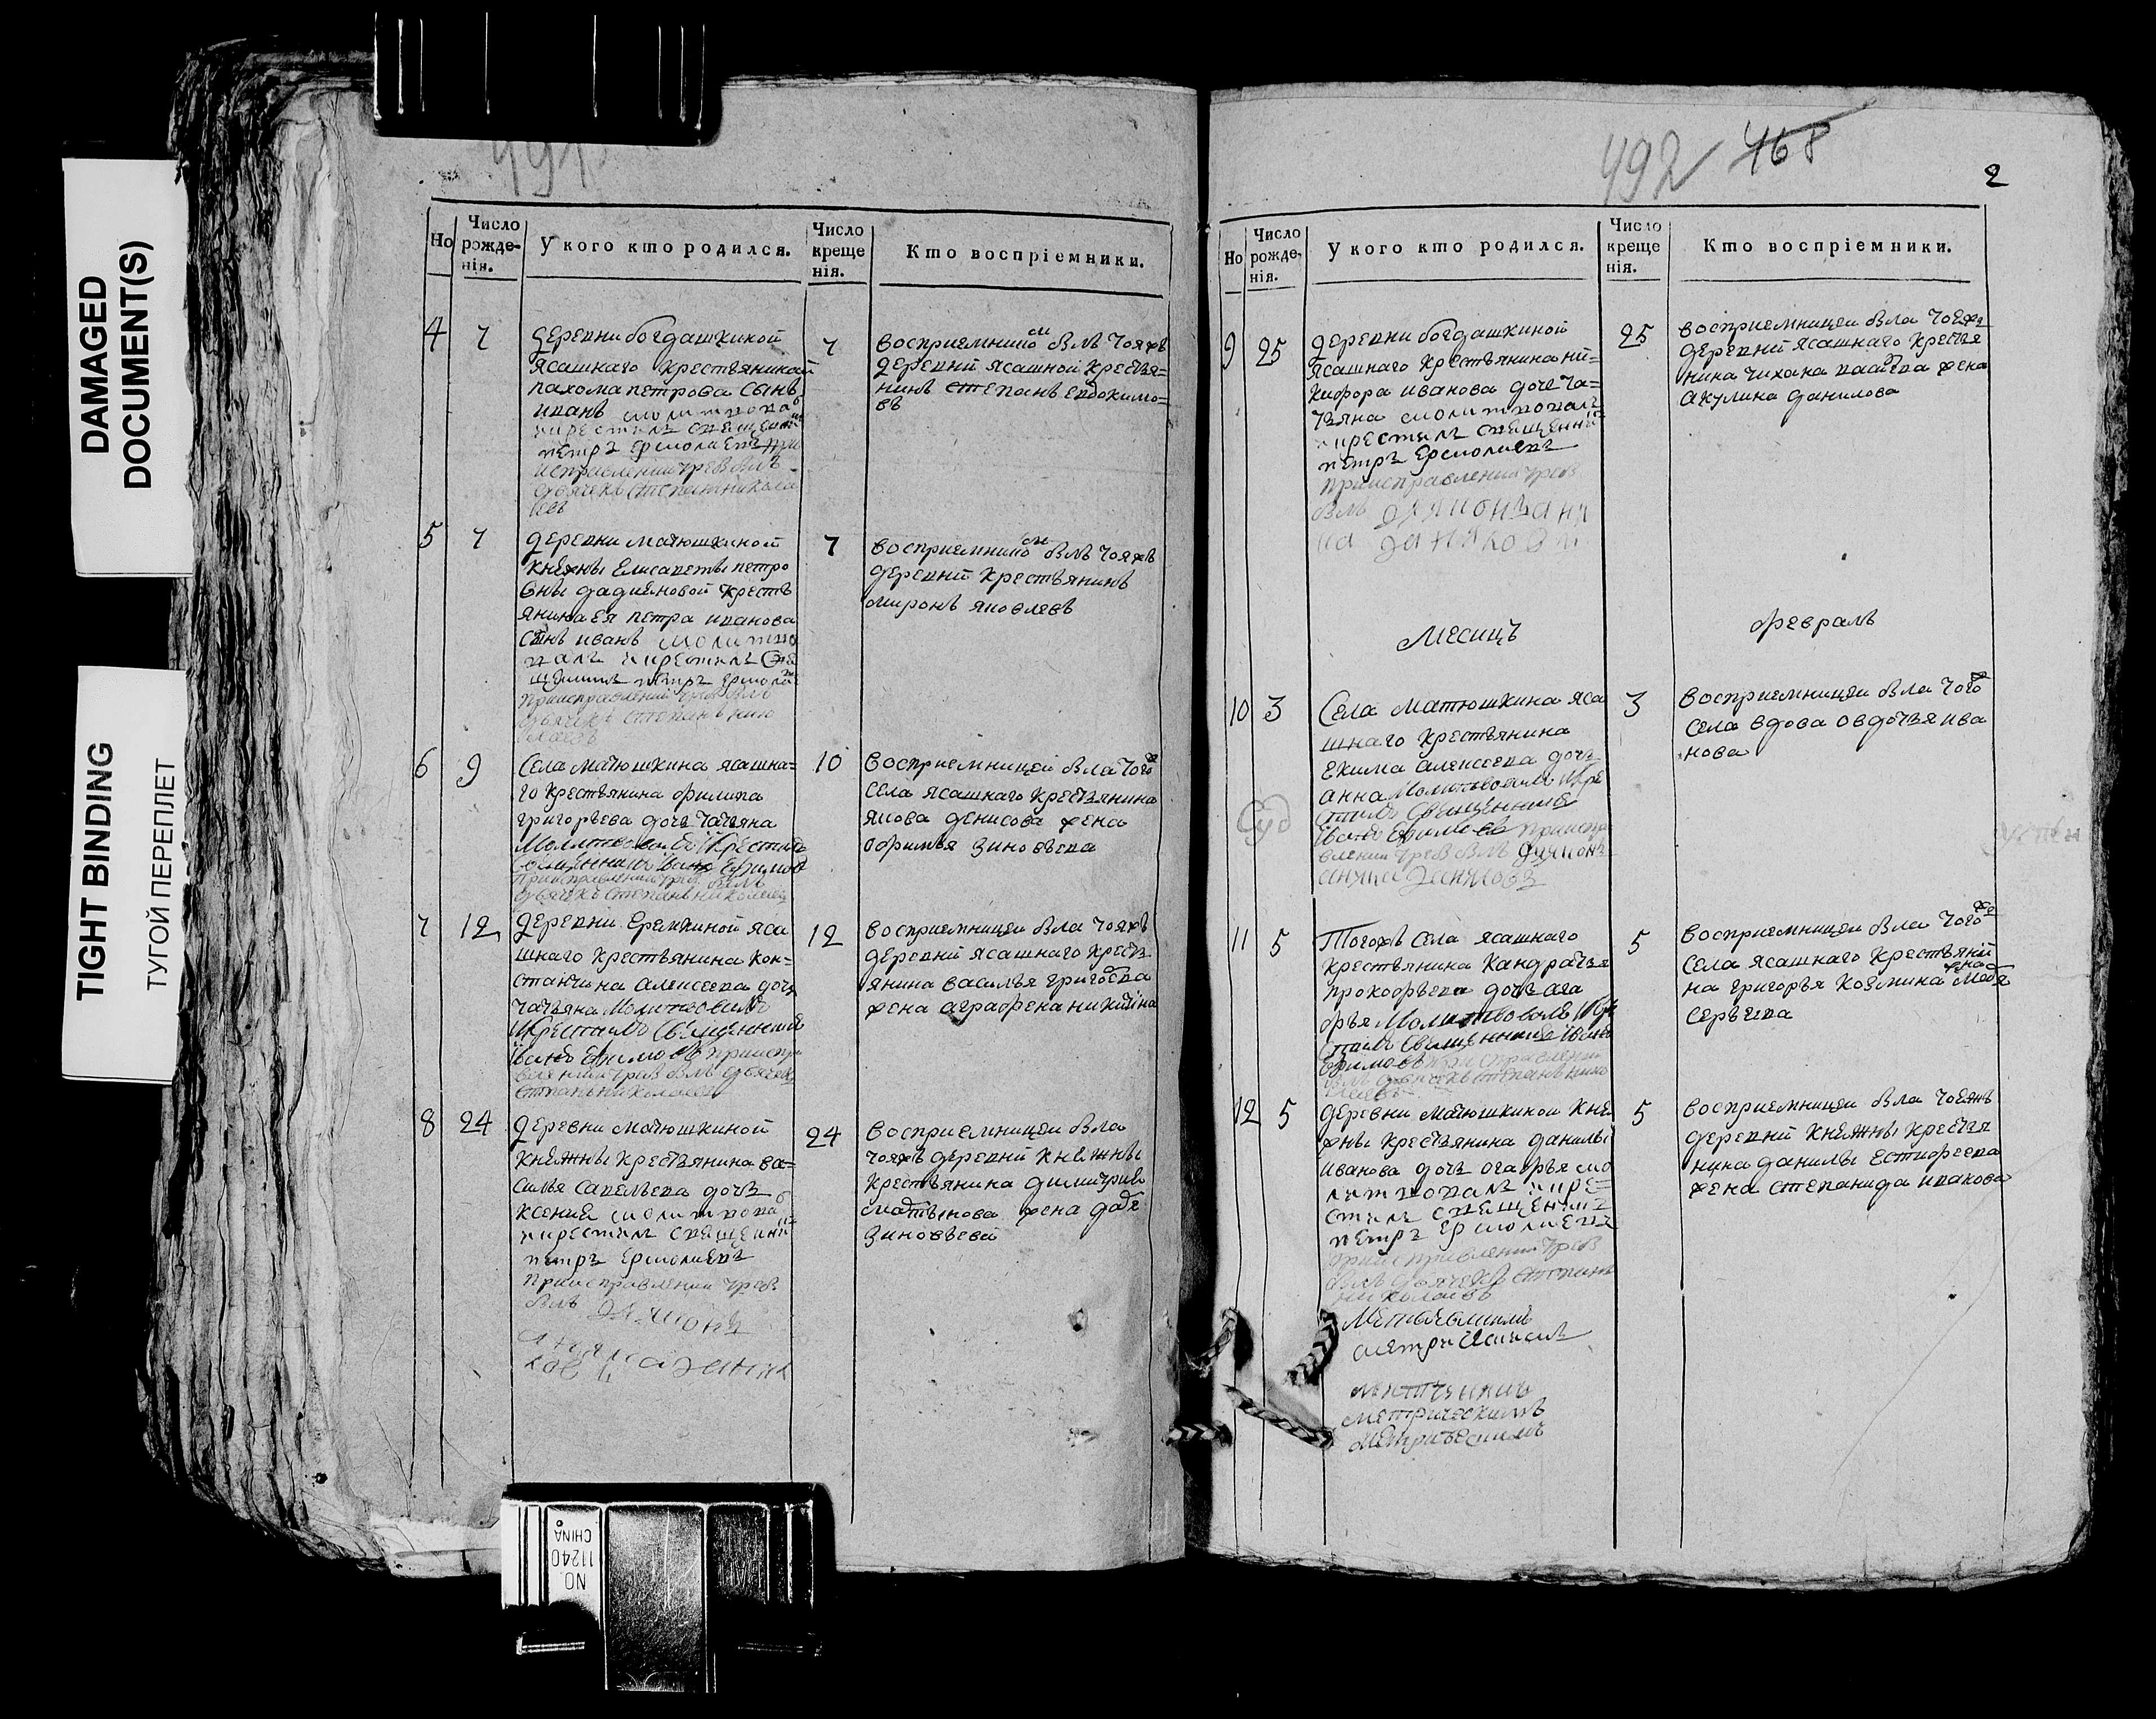 DAMAGED
DOCUMENT(S)
TIGHT BINDING
ТУГОЙ ПЕРЕПЛЕТ
491
Но
Число рожде-нія.
У кого кто родился.
Число креще нія.
Кто воспріемники.
4
7
деревни богдашкиной
ясашнаго крестьянина
пахома петрова сынъ
иванъ молитвова
и крестилъ священни
петръ ермолаевъ при
исправлении треб былъ
дьячекъ степанъ никола
евъ
7
восприемникомъ былъ тояжъ
деревни ясашной крестья=
нинъ степанъ евдокимо=
въ
5
7
деревни матюшкиной
княжны Елисаветы петро
вны крестъ
янина ея петра иванова
сынъ иванъ молитво
валъ и крестилъ свя
щенникъ петръ ермола
при исправлении треб былъ
дьячекъ степанъ нико
лаевъ
7
восприемникомъ былъ тояжъ
деревни крестьянинъ
миронъ яковлевъ
6
9
Села матюшкина ясашна=
го крестьянина филипа
григорьева дочь татьяна
Молитвовалъ и крестилъ
священникъ Iванъ Ефимовъ
при исправлении треб былъ
дьячекъ степанъ николаевъ
10
восприемницей была того
села ясашнаго крестьянина
якова денисова жена
офимья зиновьева
7
12
деревни Еремкиной яса
шнаго крестьянина кон=
стантина алексеева дочь
татьяна Молитвовалъ
и крестилъ священникъ
Iванъ Ефимовъ при испра
влении треб былъ дьячекъ
степанъ николаевъ
12
восприемницей была тояжъ
деревни ясашнаго кресть
янина василья григорева
жена аграфена никитина
8
24
деревни матюшкиной
княжны крестьянина ва=
силья савельева дочь
ксения молитвова
и крестилъ священни
петръ ермолаевъ
при исправлении треб
былъ дьяконъ
24
восприемницей была
тояжъ деревни княжны
крестьянина димитрия
мартынова жена дарья
зиновьева
492 468
2
Но
Число рожде-нія.
У кого кто родился.
Число креще нія.
Кто воспріемники.
9
25
деревни богдашкиной
ясашнаго крестьянина ни=
кифора иванова дочь та=
тьяна молитвовалъ
и крестилъ священни
петръ ермолаевъ
при исправлении треб
былъ дьяконъ
25
восприемницей была тоежъ
деревни ясашнаго крестья
нина тихона жена
акулина данилова
Месицъ
февраль
10
3
Села Матюшкина яса
шнаго крестьянина
екима алексеева дочь
анна Молитвовалъ и кре
стилъ священникъ
Iванъ Ефимовъ при испра
влении треб былъ дьяконъ
3
восприемницей была того
села вдова овдотья ива
нова
11
5
Тогожъ села ясашнаго
крестьянина кандратья
прокофьева дочь ага
фья Молитвовалъ и кре
стилъ священникъ Iванъ
Ефимовъ при справлении
былъ дьячекъ степанъ нико
лаевъ
5
восприемницей была того
села ясашнаго крестьяни
на григорья козмина жена
сергеева
12
5
деревни матюшкиной кня
жны крестьянина данилы
иванова дочь огафья мо
литвовалъ и кре=
стилъ священни
петръ ермолаевъ
при исправлении треб
былъ дьячекъ степанъ
николаевъ
5
восприемницей была тоежъ
деревни княжны крестья
нина данилы естифеева
жена степанида иванова
метрическимъ
NO. 11240
CHINA